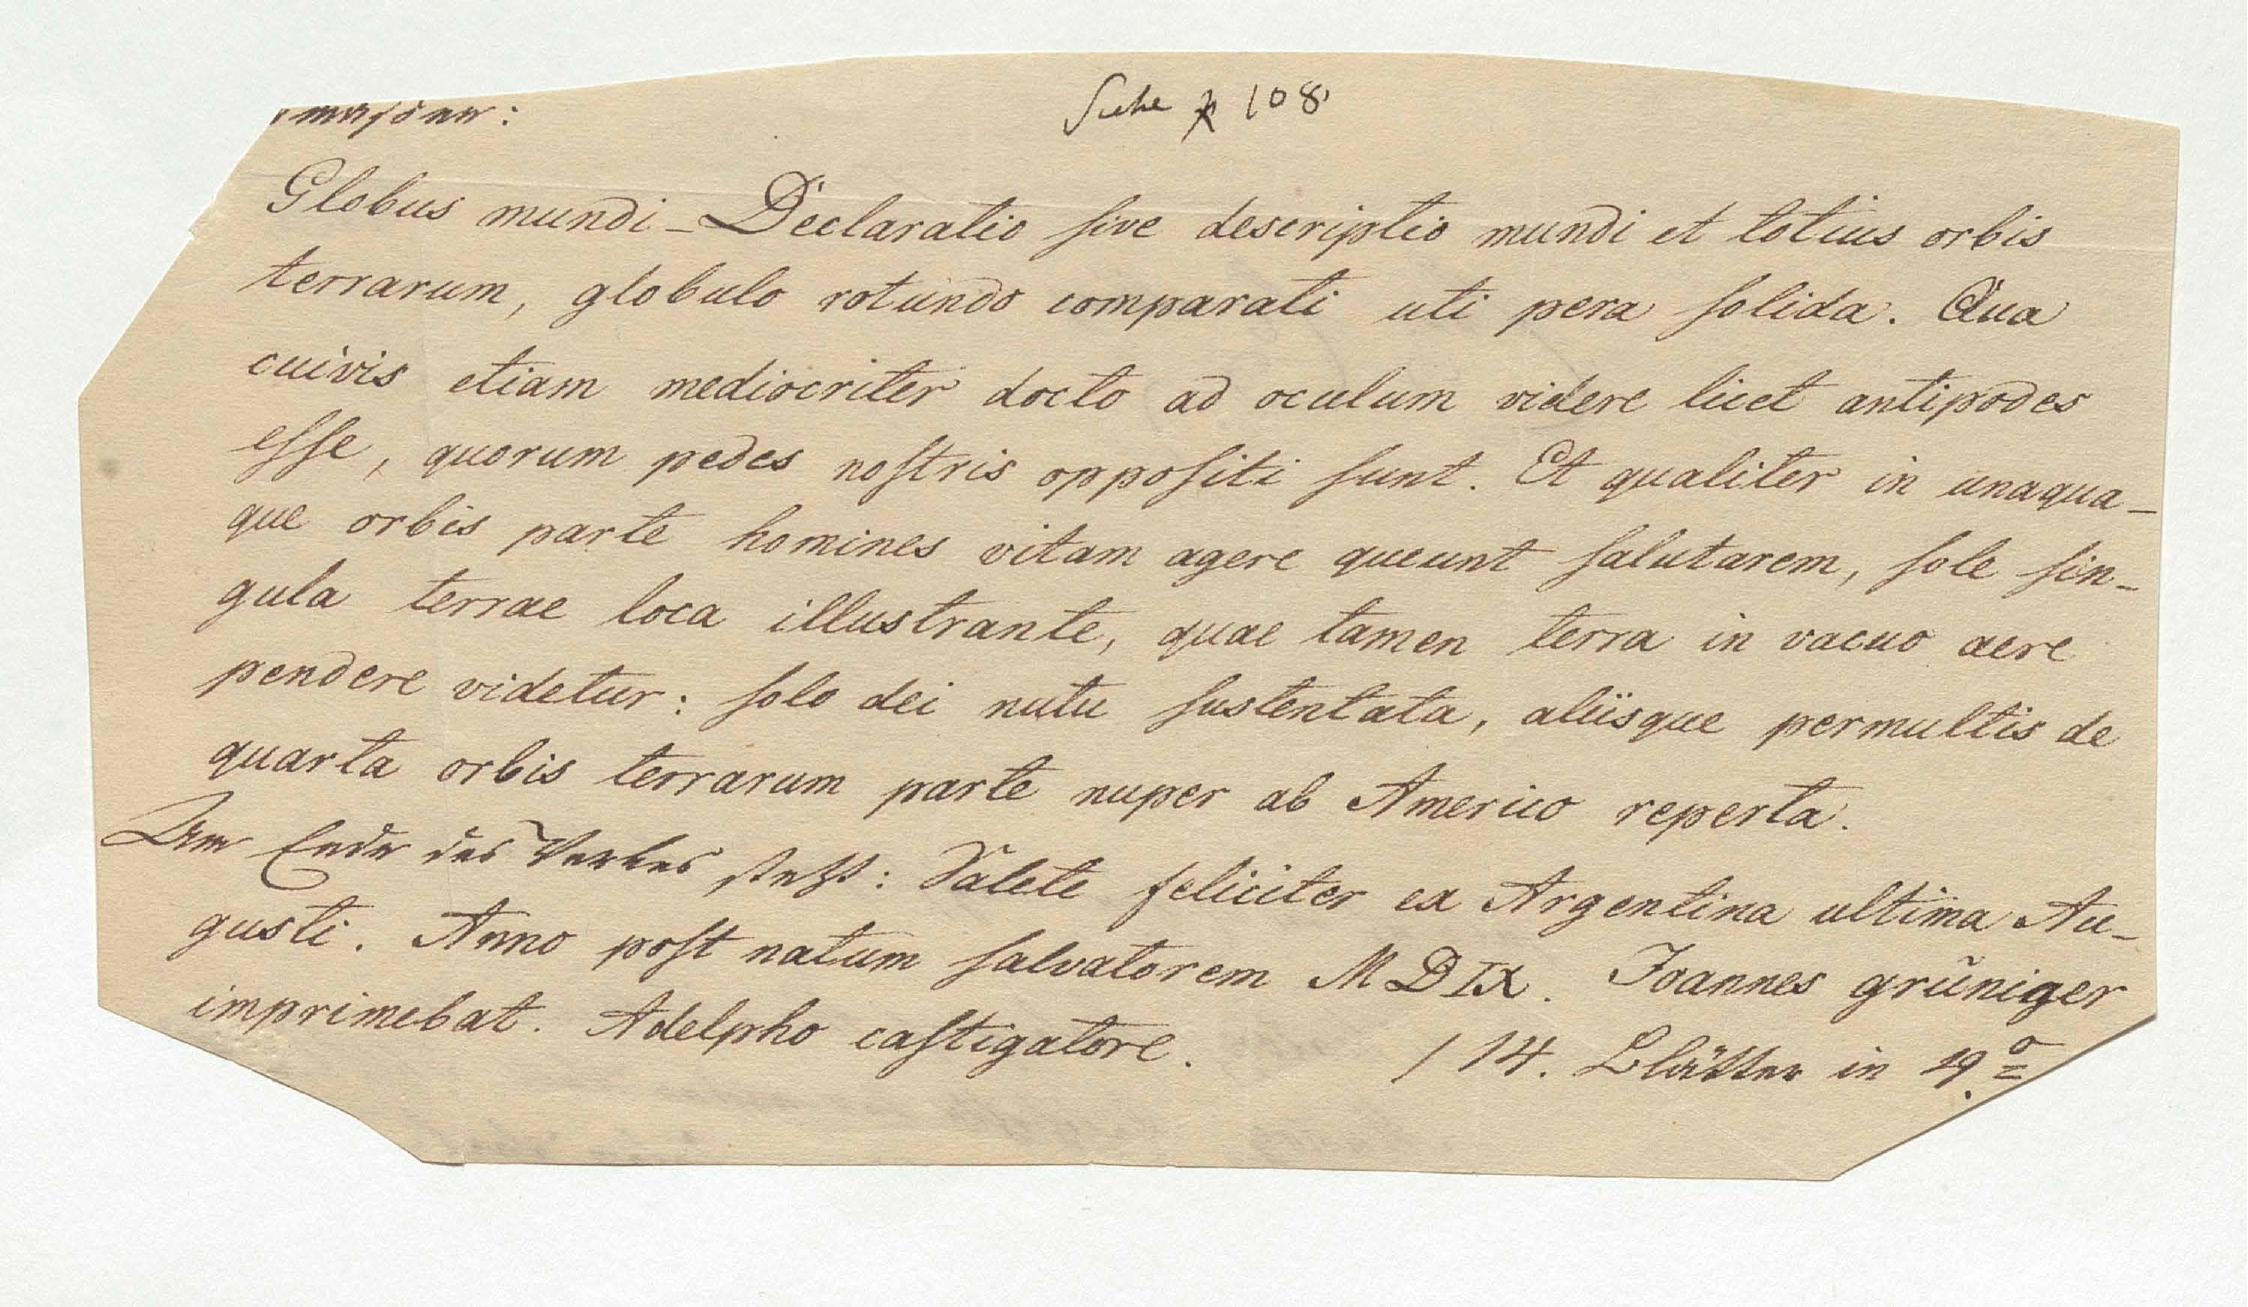 Siehe p 108
Globus mundi – Declaratio sive descriptio mundi et totius orbis
terrarum, globulo rotundo comparati uti pera solida. Qua
cuivis etiam mediocriter docto ad oculum videre licet antipodes
esse, quorum pedes nostris oppositi sunt. Et qualiter in unaqua–
que orbis parte homines vitam agere queunt salutarem, sole sin–
gula terrae loca illustrante, quae tamen terra in vacuo aere
pendere videtur: solo dei nutu sustentata, aliisque permultis de
quarta orbis terrarum parte nuper ab Americo reperta.
Am Ende des Werkes steht: Valete feliciter ex Argentina ultima Au–
gusti. Anno post natum salvatorem MDIX. Ioannes grüniger
imprimebat. Adelpho castigatore. / 14. Blätter in 4.º